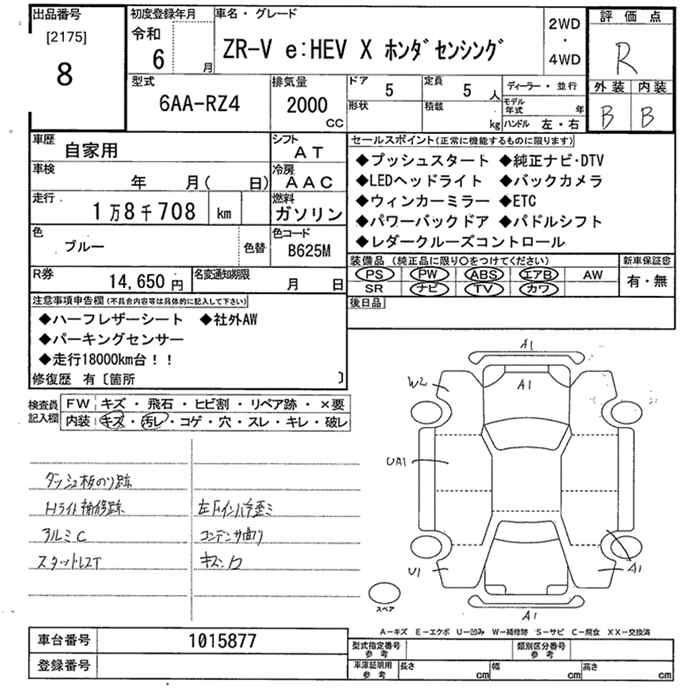 出品番号
[2175]
8
初度登録年月
令和
6 月
車名・グレード
ZR-V e:HEV X ホンダセンシング
2WD
・
4WD
評価点
R
外装 内装
B B
型式
6AA-RZ4
排気量
2000
CC
ドア
5
定員
5 人
形状
積載
kg
ディーラー・並行
モデル年式 年
ハンドル 左・右
車歴
自家用
シフト
AT
車検
年 月( 日)
冷房
AAC
走行
1万8千708 km
燃料
ガソリン
色
ブルー
色替
色コード
B625M
R券
14,650円
名変通知期限
月 日
セールスポイント(正常に機能するものに限ります)
◆プッシュスタート ◆純正ナビ・DTV
◆LEDヘッドライト ◆バックカメラ
◆ウィンカーミラー ◆ETC
◆パワーバックドア ◆パドルシフト
◆レダークルーズコントロール
装備品 (純正品に限り○をつけてください)
新車保証書
PS PW ABS エアB AW
SR ナビ TV カワ
有・無
後日品
注意事項申告欄(不具合内容等は具体的に記入して下さい)
◆ハーフレザーシート ◆社外AW
◆パーキングセンサー
◆走行18000km台!!
修復歴 有〔箇所 〕
検査員記入欄
FW キズ・飛石・ヒビ割・リペア跡・×要
内装 キズ・汚レ・コゲ・穴・スレ・キレ・破レ
ダッシュ板のり跡
Hライト補修跡
アルミC
スタットレスT
コンデンサ曲り
A1
W2
A1
UA1
U1
A1
A1
スペア
A−キズ E−エクボ U−凹み W−補修跡 S−サビ C−腐食 XX−交換済
車台番号
1015877
登録番号
型式指定番号
参考
類別区分番号
参考
車庫証明用
参考
長さ cm
幅 cm
高さ cm